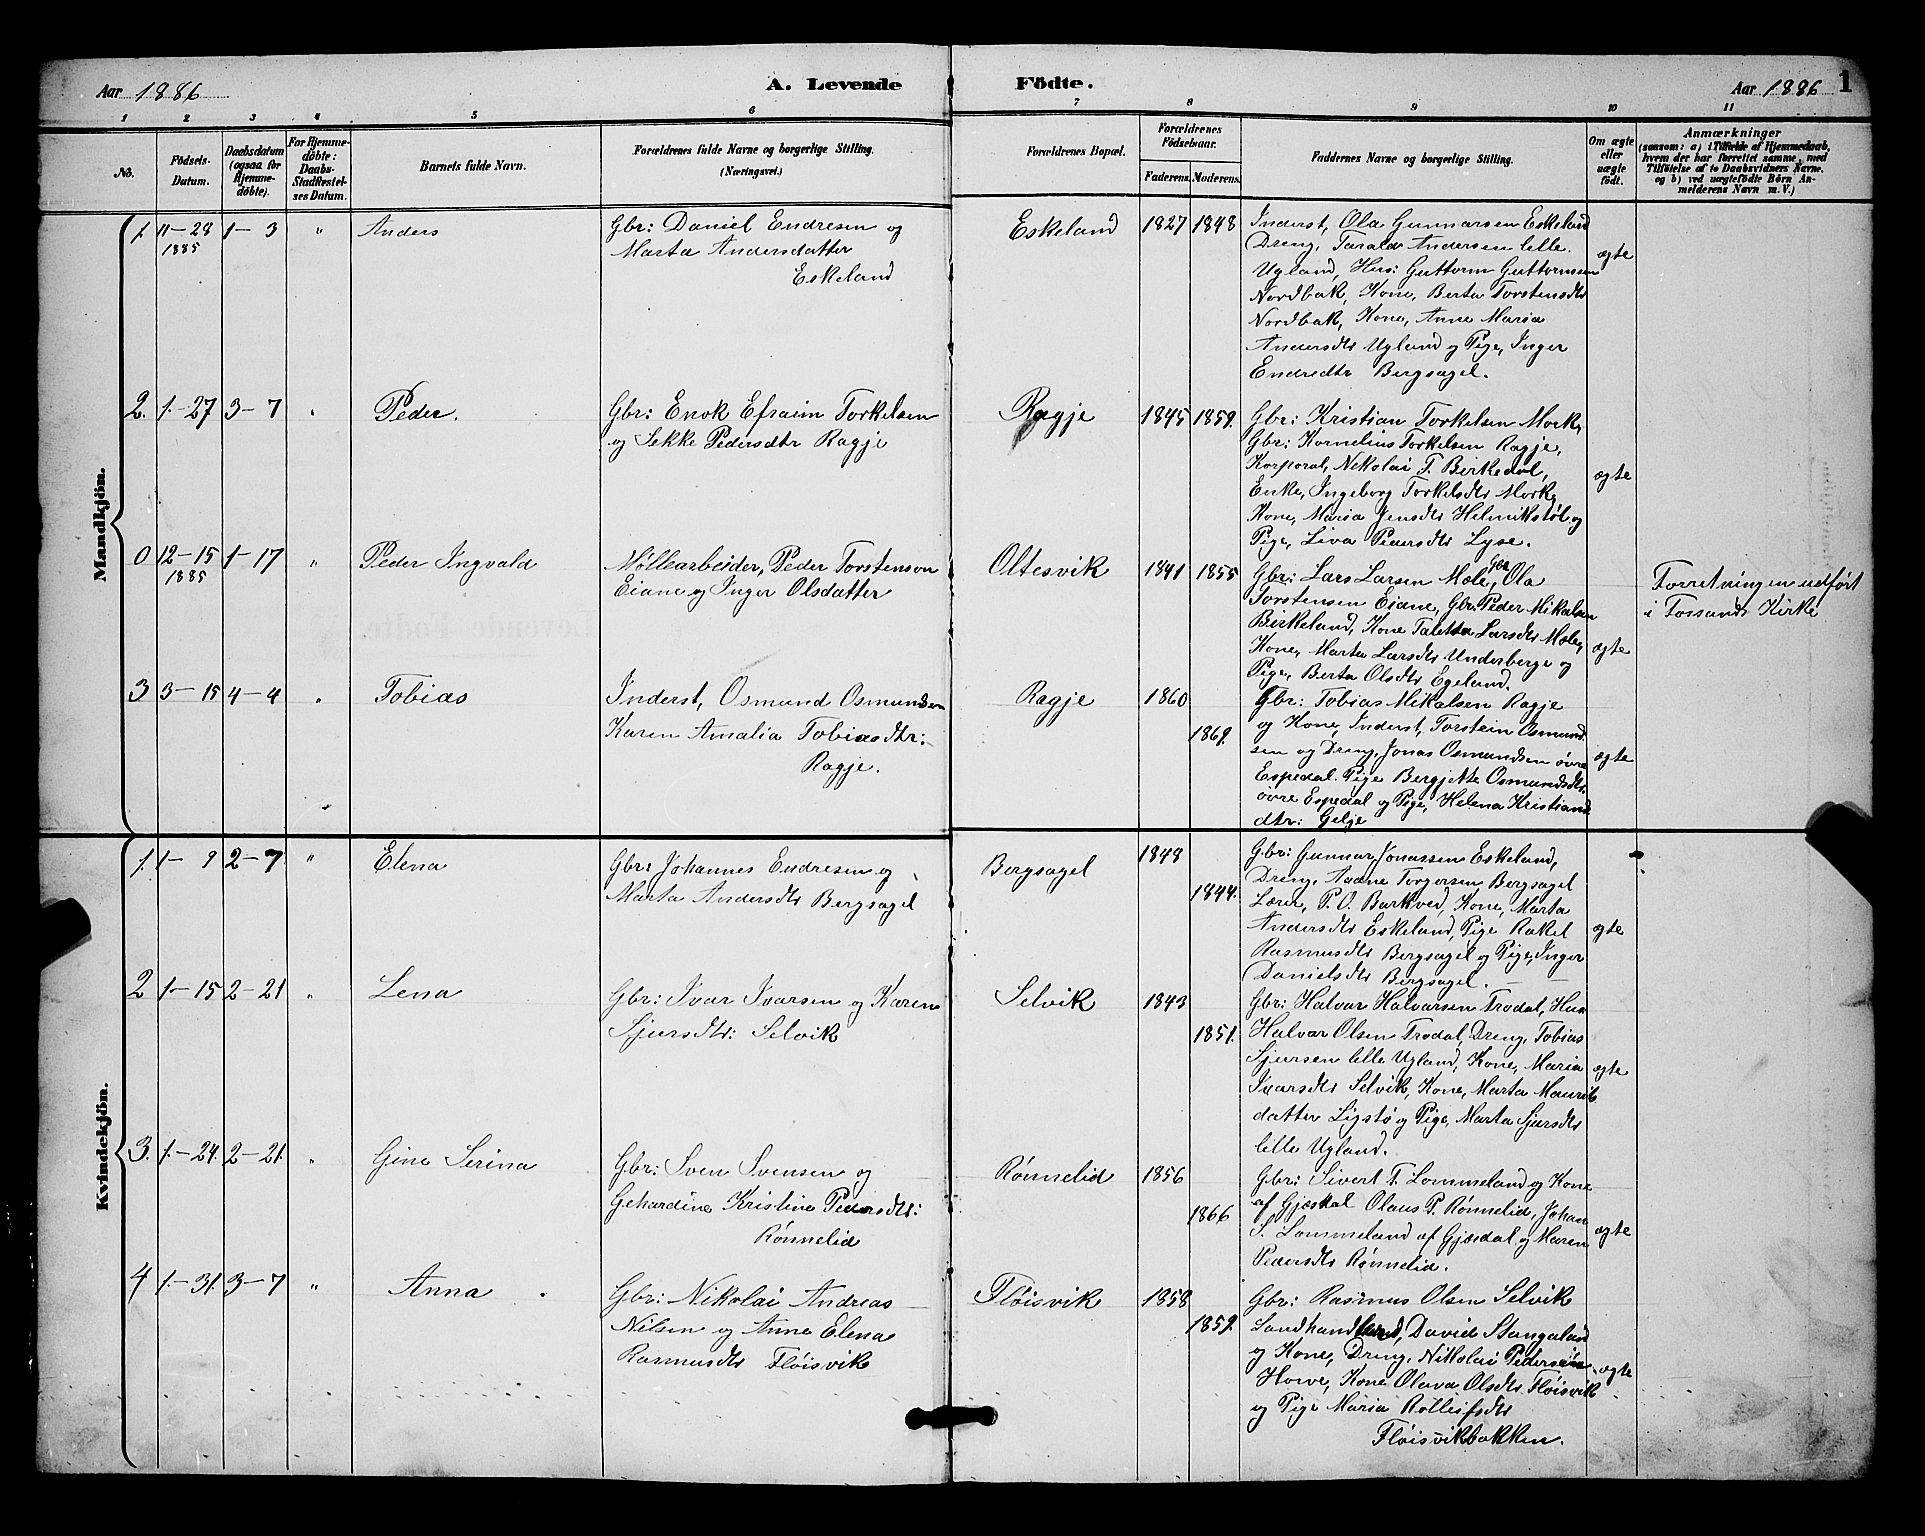 Aar 1886 A. Levende Födte. Aar 1886 1
1 2 3 4 5 6 7 8 9 10 11
No.
Födsels-
Datum.
Daabsdatum
(ogsaa for
Hjemme-
döbte).
For Hjemme-
döbte:
Daabs-
Stadfæstel-
ses Datum.
Barnets fulde Navn.
Forældrenes fulde Navne og borgerlige Stilling.
(Næringsvei.)
Forældrenes Bopæl.
Forældrenes
Födselsaar.
Faderens. Moderens.
Faddernes Navne og borgerlige Stilling.
Om ægte
eller
uægte
födt.
Anmærkninger
(saasom: a) i Tilfælde af Hjemmedaab,
hvem der har forrettet samme, med
Tilföielse af to Daabsvidners Navne,
og b) ved uægtefödte Börn An-
melderens Navn m. V.)
Mandkjön.
1. 11-28 1-3 " Anders
1885
Gbr: Daniel Endresen og
Marta Andersdatter
Eskeland
Eskeland 1827 1848
Inderst, Ola Gunnarsen Eskeland
Dreng, Tarald Andersen lille
Ugland, Hus: Guttorm Guttormssen
Nordbak, Kone, Berta Torstensdtr
Nordbak, Kone, Anne Maria
Andersdtr Ugland og Pige, Inger
Endredtr Bergsagel.
ægte
2. 1-27 3-7 " Peder.
Gbr: Enok Efraim Torkelsen
og Sekke Pedersdtr Ragje
Ragje 1845 1859.
Gbr: Kristian Torkelsen Mork,
Gbr: Kornelius Torkelsen Ragje,
Korporal, Nikolai T. Birkedal,
Enke, Ingeborg Torkelsdtr Mork,
Kone, Maria Jensdtr Helmikstøl og
Pige, Liva Pedersdtr Lyse.
ægte
0 12-15 1-17 " Peder Ingvald
1885
Møllearbeider, Peder Torstenson
Eiane og Inger Olsdatter
Oltesvik 1841 1855
Gbr: Lars Larsen Mæle, Gbr Ola
Torstensen Eiane, Gbr Peder Mikalsen
Birkeland, Kone Taletta Larsdtr Mæle,
Kone, Marta Larsdtr Underberge og
Pige, Berta Olsdtr Egeland.
ægte
Forretningen udført
i Fossands Kirke
3 3-15 4-4 " Tobias
Inderst, Osmund Osmundsen
Karen Amalia Tobiasdtr:
Ragje.
Ragje 1860
1869.
Gbr: Tobias Mikalsen Ragje
og Kone, Inderst, Torstein Osmund
sen og Dreng, Jonas Osmundsen øvre
Espedal. Pige Bergjette Osmundsdtr.
øvre Espedal og Pige, Helena Kristians
dtr: Gelje
ægte
Kvindekjön.
1. 1-9 2-7 " Elena
Gbr: Johannes Endresen og
Marta Andersdtr Bergsagel
Bergsagel 1848
1844.
Gbr: Gunnar Jonassen Eskeland,
Dreng, Aadne Torgersen Bergsagel
Lærer, P. O. Barkved, Kone, Marta
Andersdtr Eskeland, Pige Rakel
Rasmusdtr Bergsagel og Pige, Inger
Danielsdtr Bergsagel.
ægte
2 1-15 2-21 " Lena
Gbr: Ivar Ivarsen og Karen
Sjursdtr: Selvik
Selvik 1843
1851.
Gbr: Halvar Halvarsen Trodal, Hus
Halvar Olsen Trodal, Dreng, Tobias
Sjursen lille Ugland, Kone, Maria
Ivarsdtr Selvik, Kone, Marta Maurits
datter Ligstø og Pige, Marta Sjursdtr
lille Ugland.
ægte
3. 1-24. 2-21. " Gine Serina
Gbr: Sven Svensen og
Gehardine Kristine Pedersdtr:
Rønnelid
Rønnelid 1856
1866
Gbr: Sivert T. Lommeland og Kone
af Gjesdal Olaus P. Rønnelid, Johan
S. Lommeland af Gjesdal og Maren
Pedersdtr Rønnelid.
ægte
4 1-31. 3-7 " Anna
Gbr: Nikolai Andreas
Nilsen og Anne Elena
Rasmusdtr Fløisvik
Fløisvik 1858
1859.
Gbr: Rasmus Olsen Selvik
Landhandler, David Stangeland
og Kone, Dreng, Nikolai Pedersen
Howe, Kone Olava Olsdtr Fløisvik
og Pige Maria Rolleifsdtr
Fløisvikbakken.
ægte